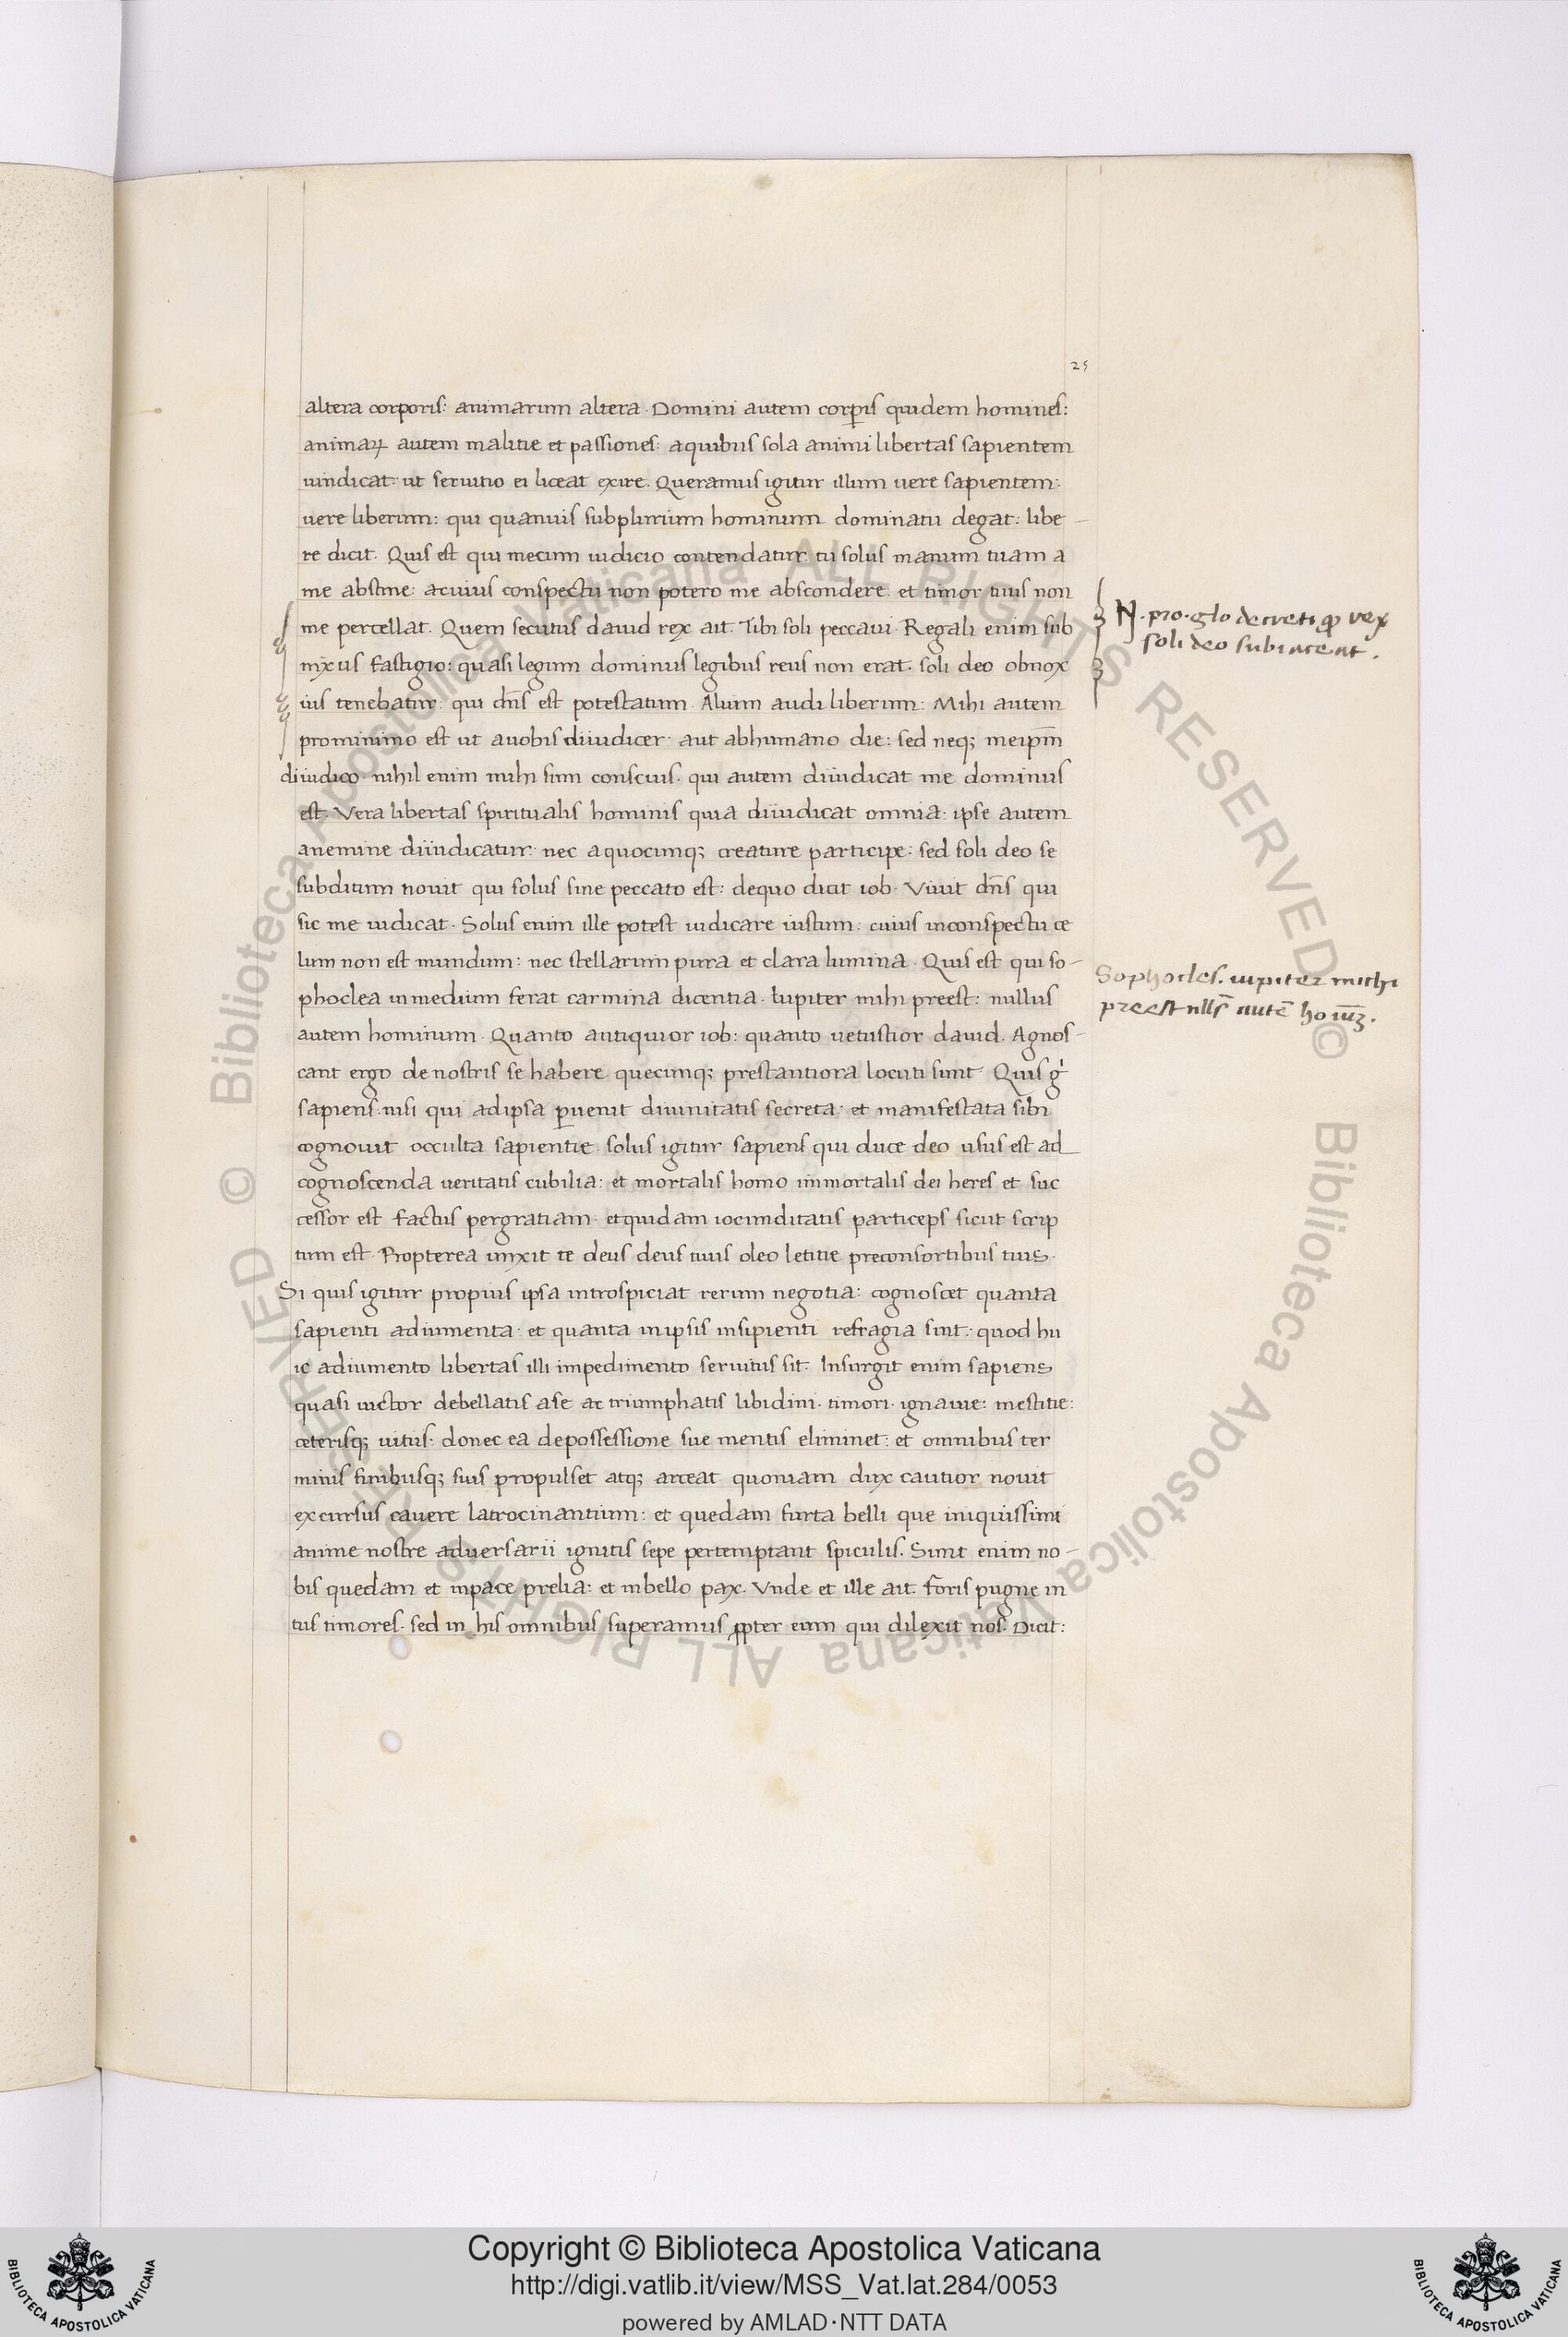 25
altera corporis: animarum altera. Domini autem corꝑis quidem homines:
animaꝝ autem malitie et passiones: aquibus sola animi libertas sapientem
uindicat: ut seruitio ei liceat exire. Queramus igitur illum uere sapientem:
uere liberum: qui quanuis subplurium hominum dominatu degat: libe-
re dicit. Quis est qui mecum iudicio contendatur. tu solus manum tuam a
me abstine: acuius conspectu non potero me abscondere. et timor tuus non
me percellat. Quem secutus dauid rex ait. Tibi soli peccaui. Regali enim sub
nixus fastigio: quasi legum dominus legibus reus non erat. soli deo obnox
ius tenebatur: qui dn̄s est potestatum. Alium audi liberum: Mihi autem
prominimo est ut auobis diiudicer. aut abhumano die: sed neqꝫ meip̄m
diiudico. nihil enim mihi sum conscius. qui autem diiudicat me dominus
est. Vera libertas spiritualis hominis quia diiudicat omnia: ipse autem
anemine diiudicatur. nec aquocumqꝫ creature participe: sed soli deo se
subditum nouit qui solus sine peccato est: dequo dicit iob. Viuit dn̄s qui
sic me iudicat. Solus enim ille potest iudicare iustum: cuius inconspectu ce
lum non est mundum: nec stellarum pura et clara lumina. Quis est qui so-
phoclea inmedium ferat carmina dicentia. Iupiter mihi preest: nullus
autem hominum. Quanto antiquior iob: quanto uetustior dauid. Agnos-
cant ergo denostris se habere quecumqꝫ prestantiora locuti sunt. Quis gͥ
sapiens. nisi qui adipsa ꝑuenit diuinitatis secreta: et manifestata sibi
cognouit occulta sapientie. solus igitur sapiens qui duce deo usus est ad
cognoscenda ueritatis cubilia: et mortalis homo immortalis dei heres et suc
cessor est factus pergratiam. etquidam iocunditatis particeps sicut scrip
tum est. Propterea unxit te deus deus tuus oleo letitie preconsortibus tuis.
Si quis igitur propius ipsa introspiciat rerum negotia: cognoscet quanta
sapienti adiumenta. et quanta inipsis insipienti refragia sint: quod hu
ic adiumento libertas illi impedimento seruitus sit. Insurgit enim sapiens
quasi uictor debellatis ase ac triumphatis libidini. timori. ignauie: mestitie:
ceterisqꝫ uitiis: donec ea depossessione sue mentis eliminet: et omnibus ter
minis finibusqꝫ suis propulset atqꝫ arceat quoniam dux cautior nouit
excursus cauere latrocinantium: et quedam furta belli que iniquissimi
anime nostre aduersarii ignitis sepe pertemptant spiculis. Sunt enim no-
bis quedam et inpace prelia: et inbello pax. Vnde et ille ait. foris pugne in
tus timores. sed in his omnibus superamus ꝓpter eum qui dilexit nos. Dicit:
N. pro. glo decreti ꝙ rex
soli deo subiaceat.
Sophocles. iupiter michi
preest nlls̄ autē hoīuꝫ.
Copyright © Biblioteca Apostolica Vaticana
http://digi.vatlib.it/view/MSS_Vat.lat.284/0053
powered by AMLAD·NTT DATA
BIBLIOTECA APOSTOLICA VATICANA
BIBLIOTECA APOSTOLICA VATICANA
© Biblioteca Apostolica Vaticana ALL RIGHTS RESERVED © Biblioteca Apostolica Vaticana ALL RIGHTS RESERVED